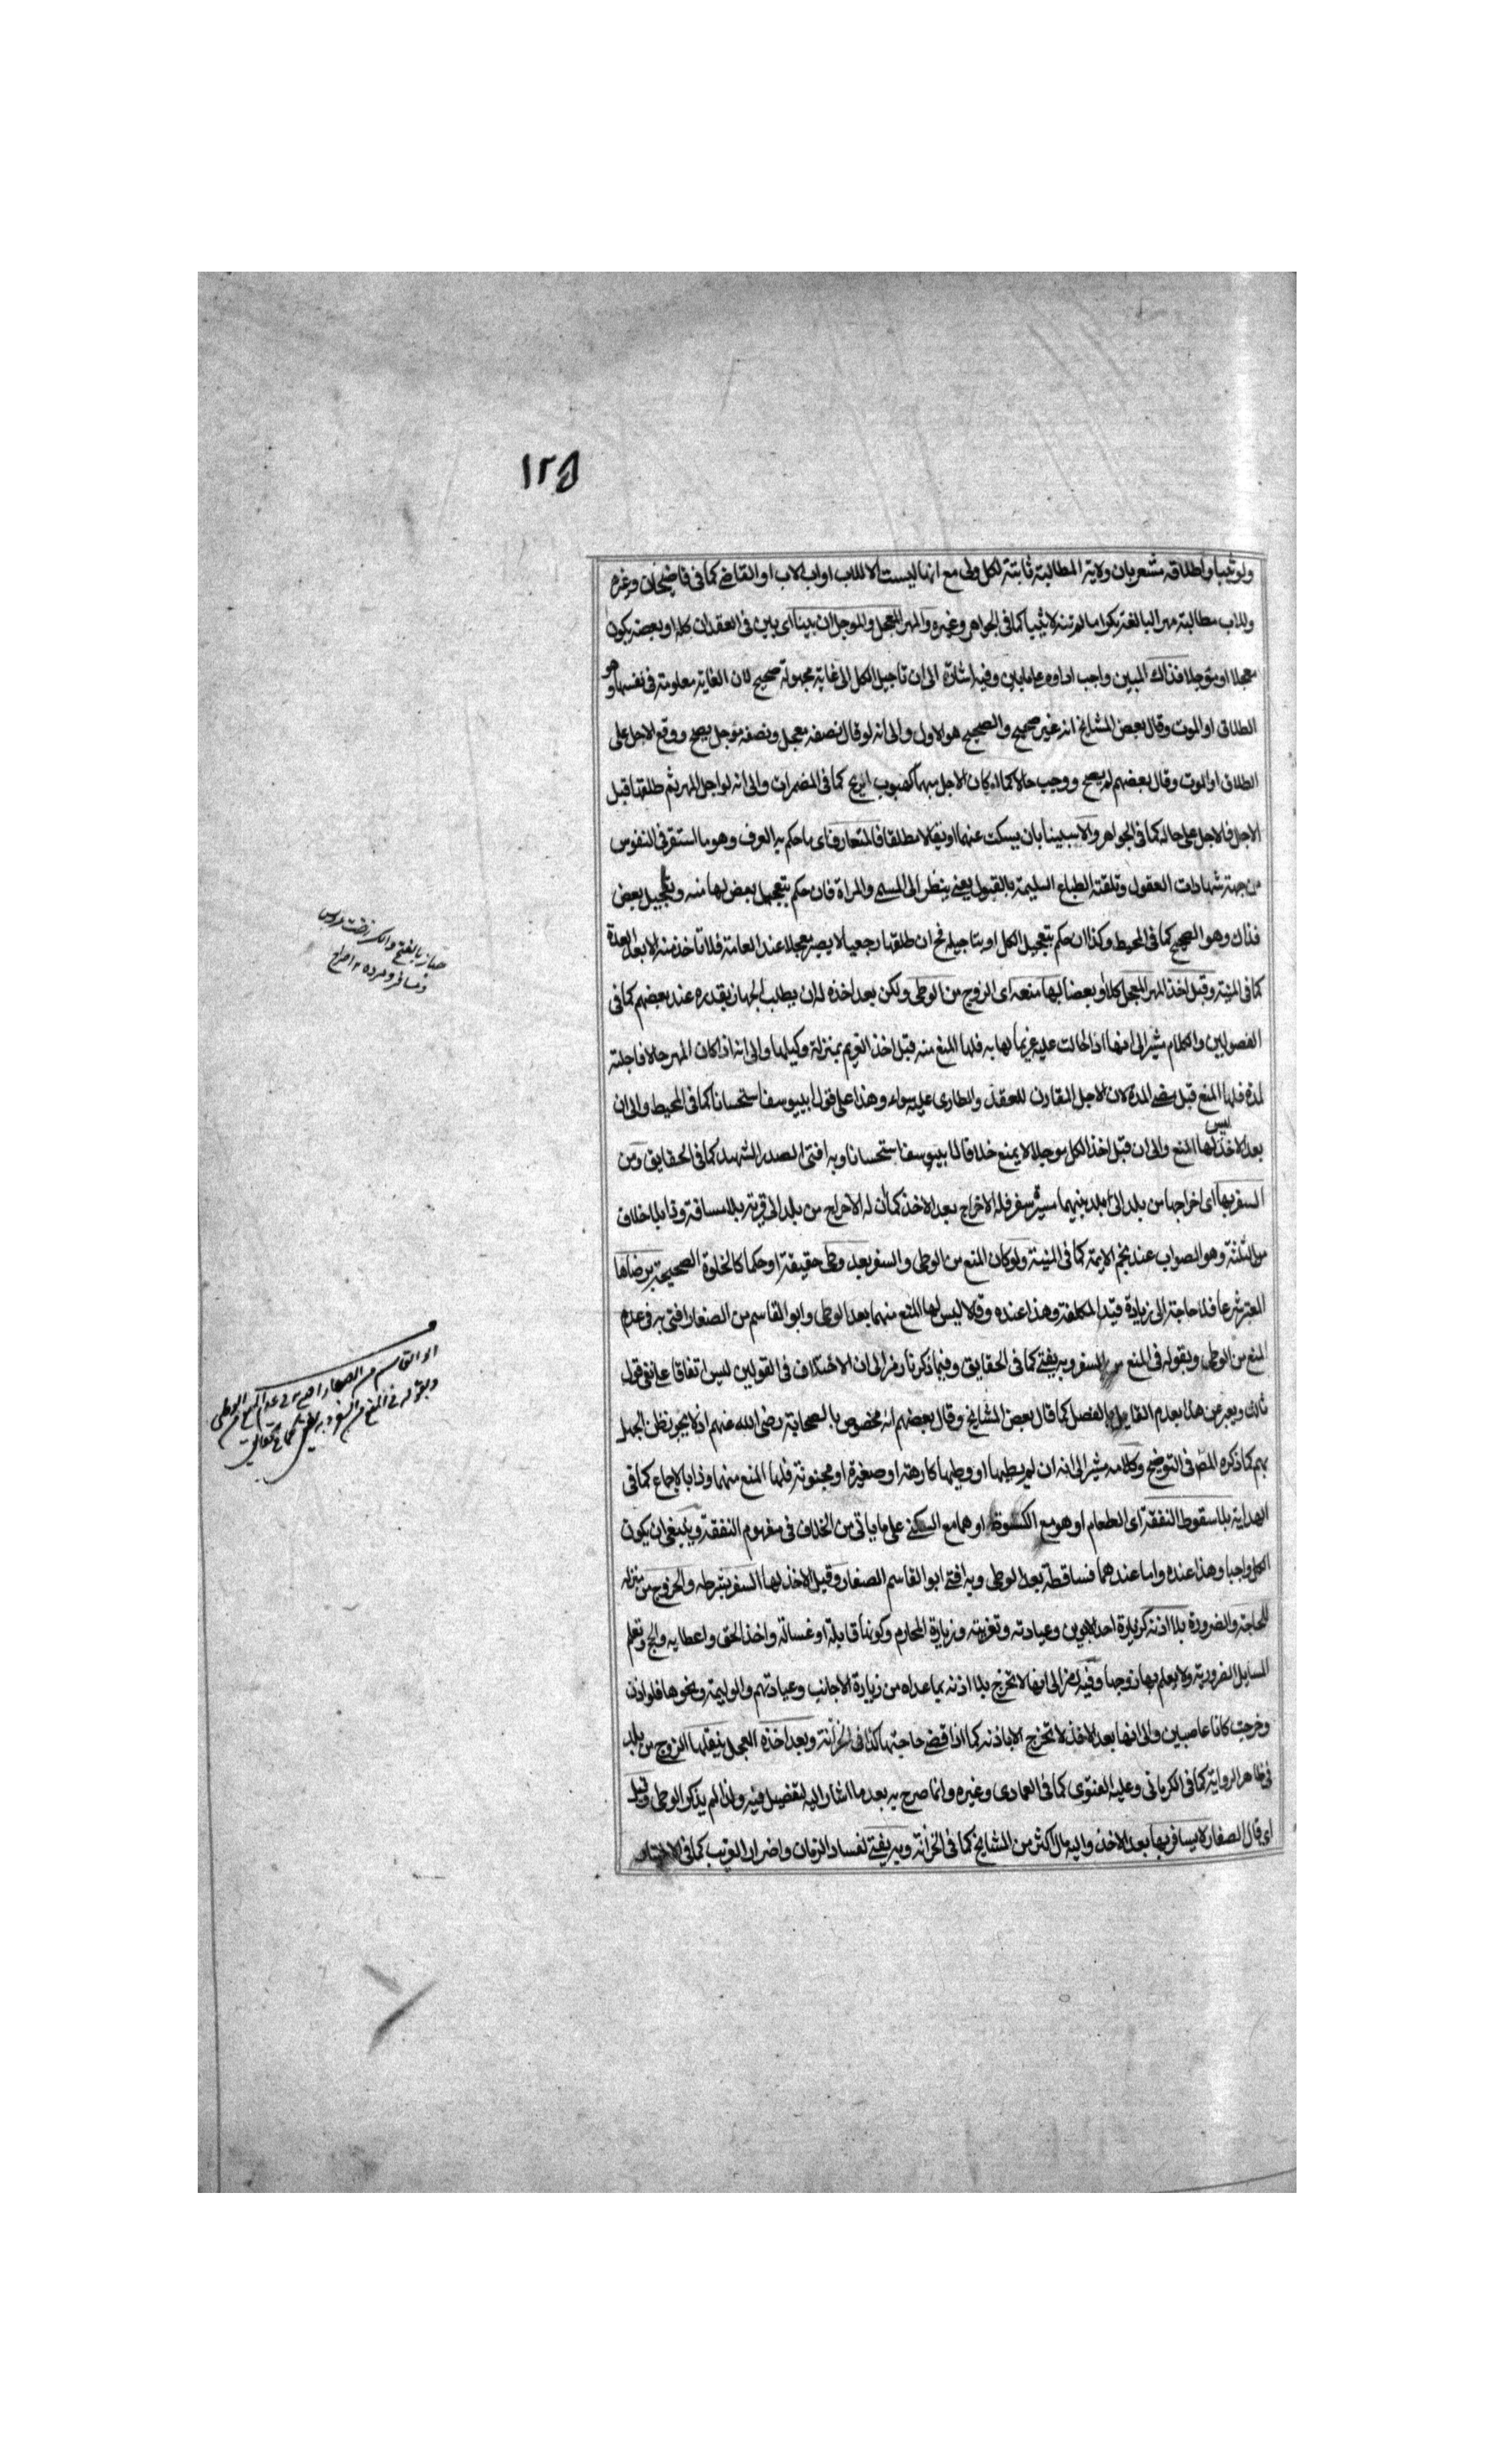 ١٢٥
ولو ثيبا واطلاقه مشعر بان ولاية المطالبة ثابتة لكل ولى مع انها ليست الا للاب او اب الاب او القاضى كما فى قاضيخان وغيره
وللاب مطالبة مهر البالغة بكرا ما لم تنه لا ثيبا كما فى الجواهر وغيره والمهر المعجل والموجل ان بينا اى بين فى العقد ان كله او بعضه يكون
معجلا او مؤجلا فذاك المبين واجب اداوه على ما بين وفيه اشارة الى ان تاجيل الكل الى غاية مجهولة صحيح لان الغاية معلومة فى نفسها وهو
الطلاق او الموت وقال بعض المشايخ انه غير صحيح والصحيح هو الاول والى انه لو قال نصفه معجل ونصفه مؤجل يصح ووقع الاجل على
الطلاق او الموت وقال بعضهم لم يصح ووجب حالا كما اذا كان الاجل مبهما كهبوب الريح كما فى المضمرات والى انه لو اجل المهر ثم طلقها قبل
الاجل فالاجل على حاله كما فى الجواهر والا يبينا بان يسكت عنهما او يقالا مطلقا فالمتعارف اى ما حكم به العرف وهو ما استقر فى النفوس
من جهة شهادات العقول وتلقته الطباع السليمة بالقبول يعنى ينظر الى المسمى والمراة فان حكم بتعجيل بعض لها منه وتاجيل بعض
فذاك وهو الصحيح كما فى المحيط وكذا ان حكم بتعجيل الكل او بتاجيله فح ان طلقها رجعيا لا يصير معجلا عند العامة فلا تاخذ منه الا بعد العدة
كما فى المنية وقبل اخذ المهر المعجل كلا او بعضا لها منعه اى الزوج من الوطى ولكن بعد اخذه له ان يطلب الجهاز بقدره عند بعضهم كما فى
الفصولين والكلام مشير الى انها اذا احالت عليه غريما لها به فلها المنع منه قبل اخذ الغريم بمنزلة وكيلها والى انه اذا كان المهر حالا فاجلته
لمدة فلها المنع قبل مضى المدة لان الاجل المقارن للعقد والطارى عليه سواء وهذا على قول ابييوسف استحسانا كما فى المحيط والى ان
بعد الاخذ ليس لها المنع والى ان قبل اخذ الكل موجلا لا يمنع خلافا لابييوسف استحسانا وبه افتى الصدر الشهيد كما فى الحقايق ومن
السفر بها اى اخراجها من بلد الى بلد بينهما مسيرة سفر فله الاخراج بعد الاخذ كما ان له الاخراج من بلد الى قرية بلا مسافة وذا بلا خلاف
من الثلثة وهو الصواب عند نجم الايمة كما فى المنية ولو كان المنع من الوطى والسفر بعد وطى حقيقة او حكما كالخلوة الصحيحة برضاها
المعتبر شرعا فلا حاجة الى زيادة قيد المكلفة وهذا عنده وقالا ليس لها المنع منهما بعد الوطى وابو القاسم من الصفار افتى به فى عدم
المنع من الوطى وبقوله فى المنع من السفر وبه يفتى كما فى الحقايق وفيما ذكرنا رمز الى ان الاختلاف فى القولين ليس اتفاقا على نفى قول
ثالث ويعبر عن هذا بعدم القايل بالفصل كما قال بعض المشايخ وقال بعضهم انه مخصوص بالصحابة رضى الله عنهم اذ لا يجوز ظن الجهل
بهم كما ذكره المص فى التوضيح وكلامه مشير الى انه ان لم يطيها او وطيها كارهة او صغيرة او مجنونة فلها المنع منهما وذا بالاجماع كما فى
الهداية بلا سقوط النفقة اى الطعام او هو مع الكسوة او هما مع السكنى على ما ياتى من الخلاف فى مفهوم النفقة وينبغى ان يكون
الكل واجبا وهذا عنده واما عندهما فساقطة بعد الوطى وبه افتى ابو القاسم الصفار وقبل الاخذ لها السفر بشرطه والخروج من منزله
للحاجة والضرورة بلا اذنه كزيارة احد الابوين وعيادته وتعزيته وزيارة المحارم وكونها قابلة او غسالة واخذ الحق واعطايه والحج وتعلم
المسايل الضرورية ولا يعلم بها زوجها وفيه رمز الى انها لا تخرج بلا اذنه بما عداه من زيارة الاجانب وعيادتهم والوليمة ونحوها فلو اذن
وخرجت كانا عاصيين والى انها بعد الاخذ لا تخرج الا باذنه كما اذا قضى حاجتها كذا فى الخزانة وبعد اخذه المعجل ينقلها الزوج من بلد
فى ظاهر الرواية كما فى الكرمانى وعليه الفتوى كما فى العمادى وغيره وانما صرح به بعد ما اشار اليه لتفصيل فيه ولذا لم يذكر الوطى وقيل
اى قال الصفار لا يسافر بها بعد الاخذ واليه مال اكثر من المشايخ كما فى الخزانة وبه يفتى لفساد الزمان واضرار الغريب كما فى الاختيار
جهاز بالفتح والكسر رخت عروس
ومسافر ومرده ١٢ صراح
ابو القاسم من الصفار افتى به فى عدم المنع من الوطى
وبقوله فى المنع من السفر وبه يفتى كما فى حقايق